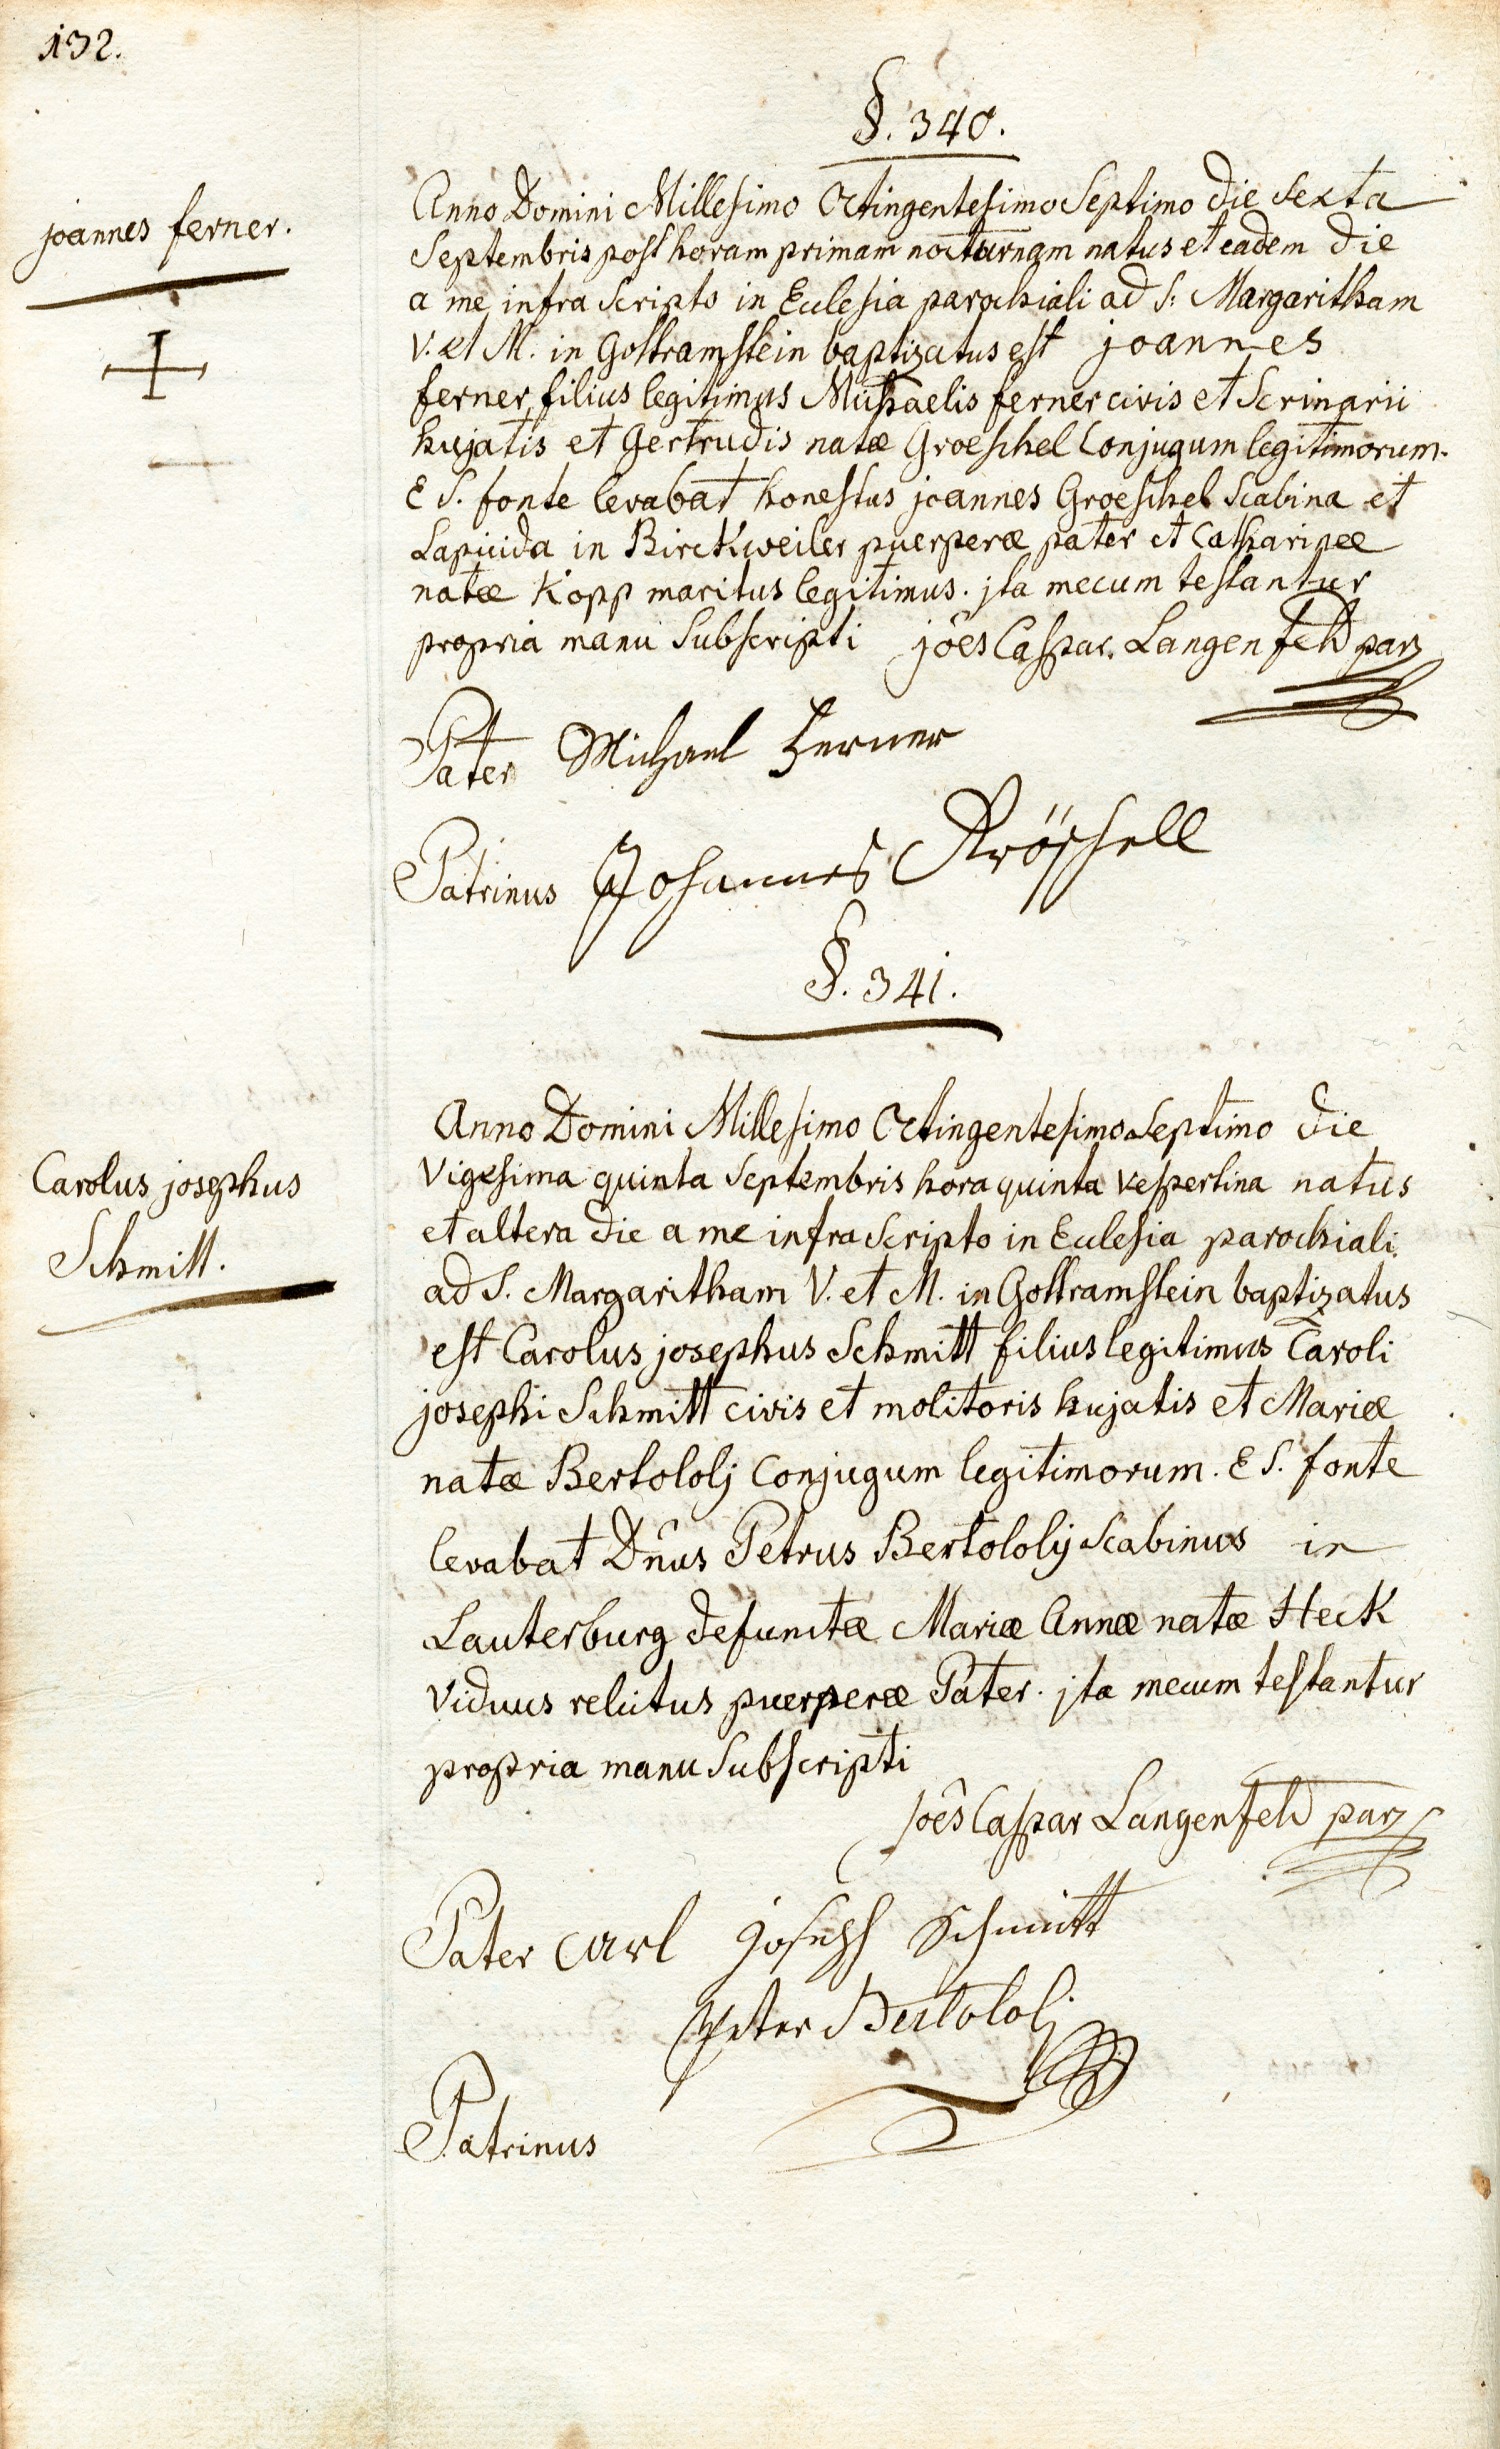 132.
§. 340.
joannes ferner.
Anno Domini Millesimo Octingentesimo Septimo die Sexta
Septembris post horam primam nocturnam natus et eadem die
a me infra Scripto in Eclesia parochiali ad S: Margaritham
V. et M. in Gottramstein baptizatus est joannes
ferner filius legitimus Michaelis ferner civis et Scrinarii
hujatis et Gertrudis natæ Groeschel Conjugum legitimorum.
E S. fonte levabat honestus joannes Groeschel Scabina et
Lapicida in Birckweiler puerperæ pater et Catharinæ
natæ Kopp maritus legitimus. jta mecum testantur
propria manu Subscripti jôes Caspar. Langenfeld par
Pater Michael Ferner
Patrinus Johannes Kröschell
§. 341.
Carolus josephus
Schmitt.
Anno Domini Millesimo Octingentesimo Septimo die
Vigesima quinta Septembris hora quinta vespertina natus
et altera die a me infra Scripto in Eclesia parochiali
ad S. Margaritham V. et M. in Gottramstein baptizatus
est Carolus josephus Schmitt filius legitimus Caroli
josephi Schmitt civis et molitoris hujatis et Mariæ
natæ Bertololj Conjugum legitimorum. E S. fonte
levabat Dn̂us Petrus Bertololÿ Scabinus in
Lauterburg defunctæ Mariæ Annæ natæ Heck
Viduus relictus puerperæ Pater. jta mecum testantur
propria manu Subscripti
joês Caspar Langenfeld par
Pater Carl Joseph Schmitt
Peter Bertololj
Patrinus